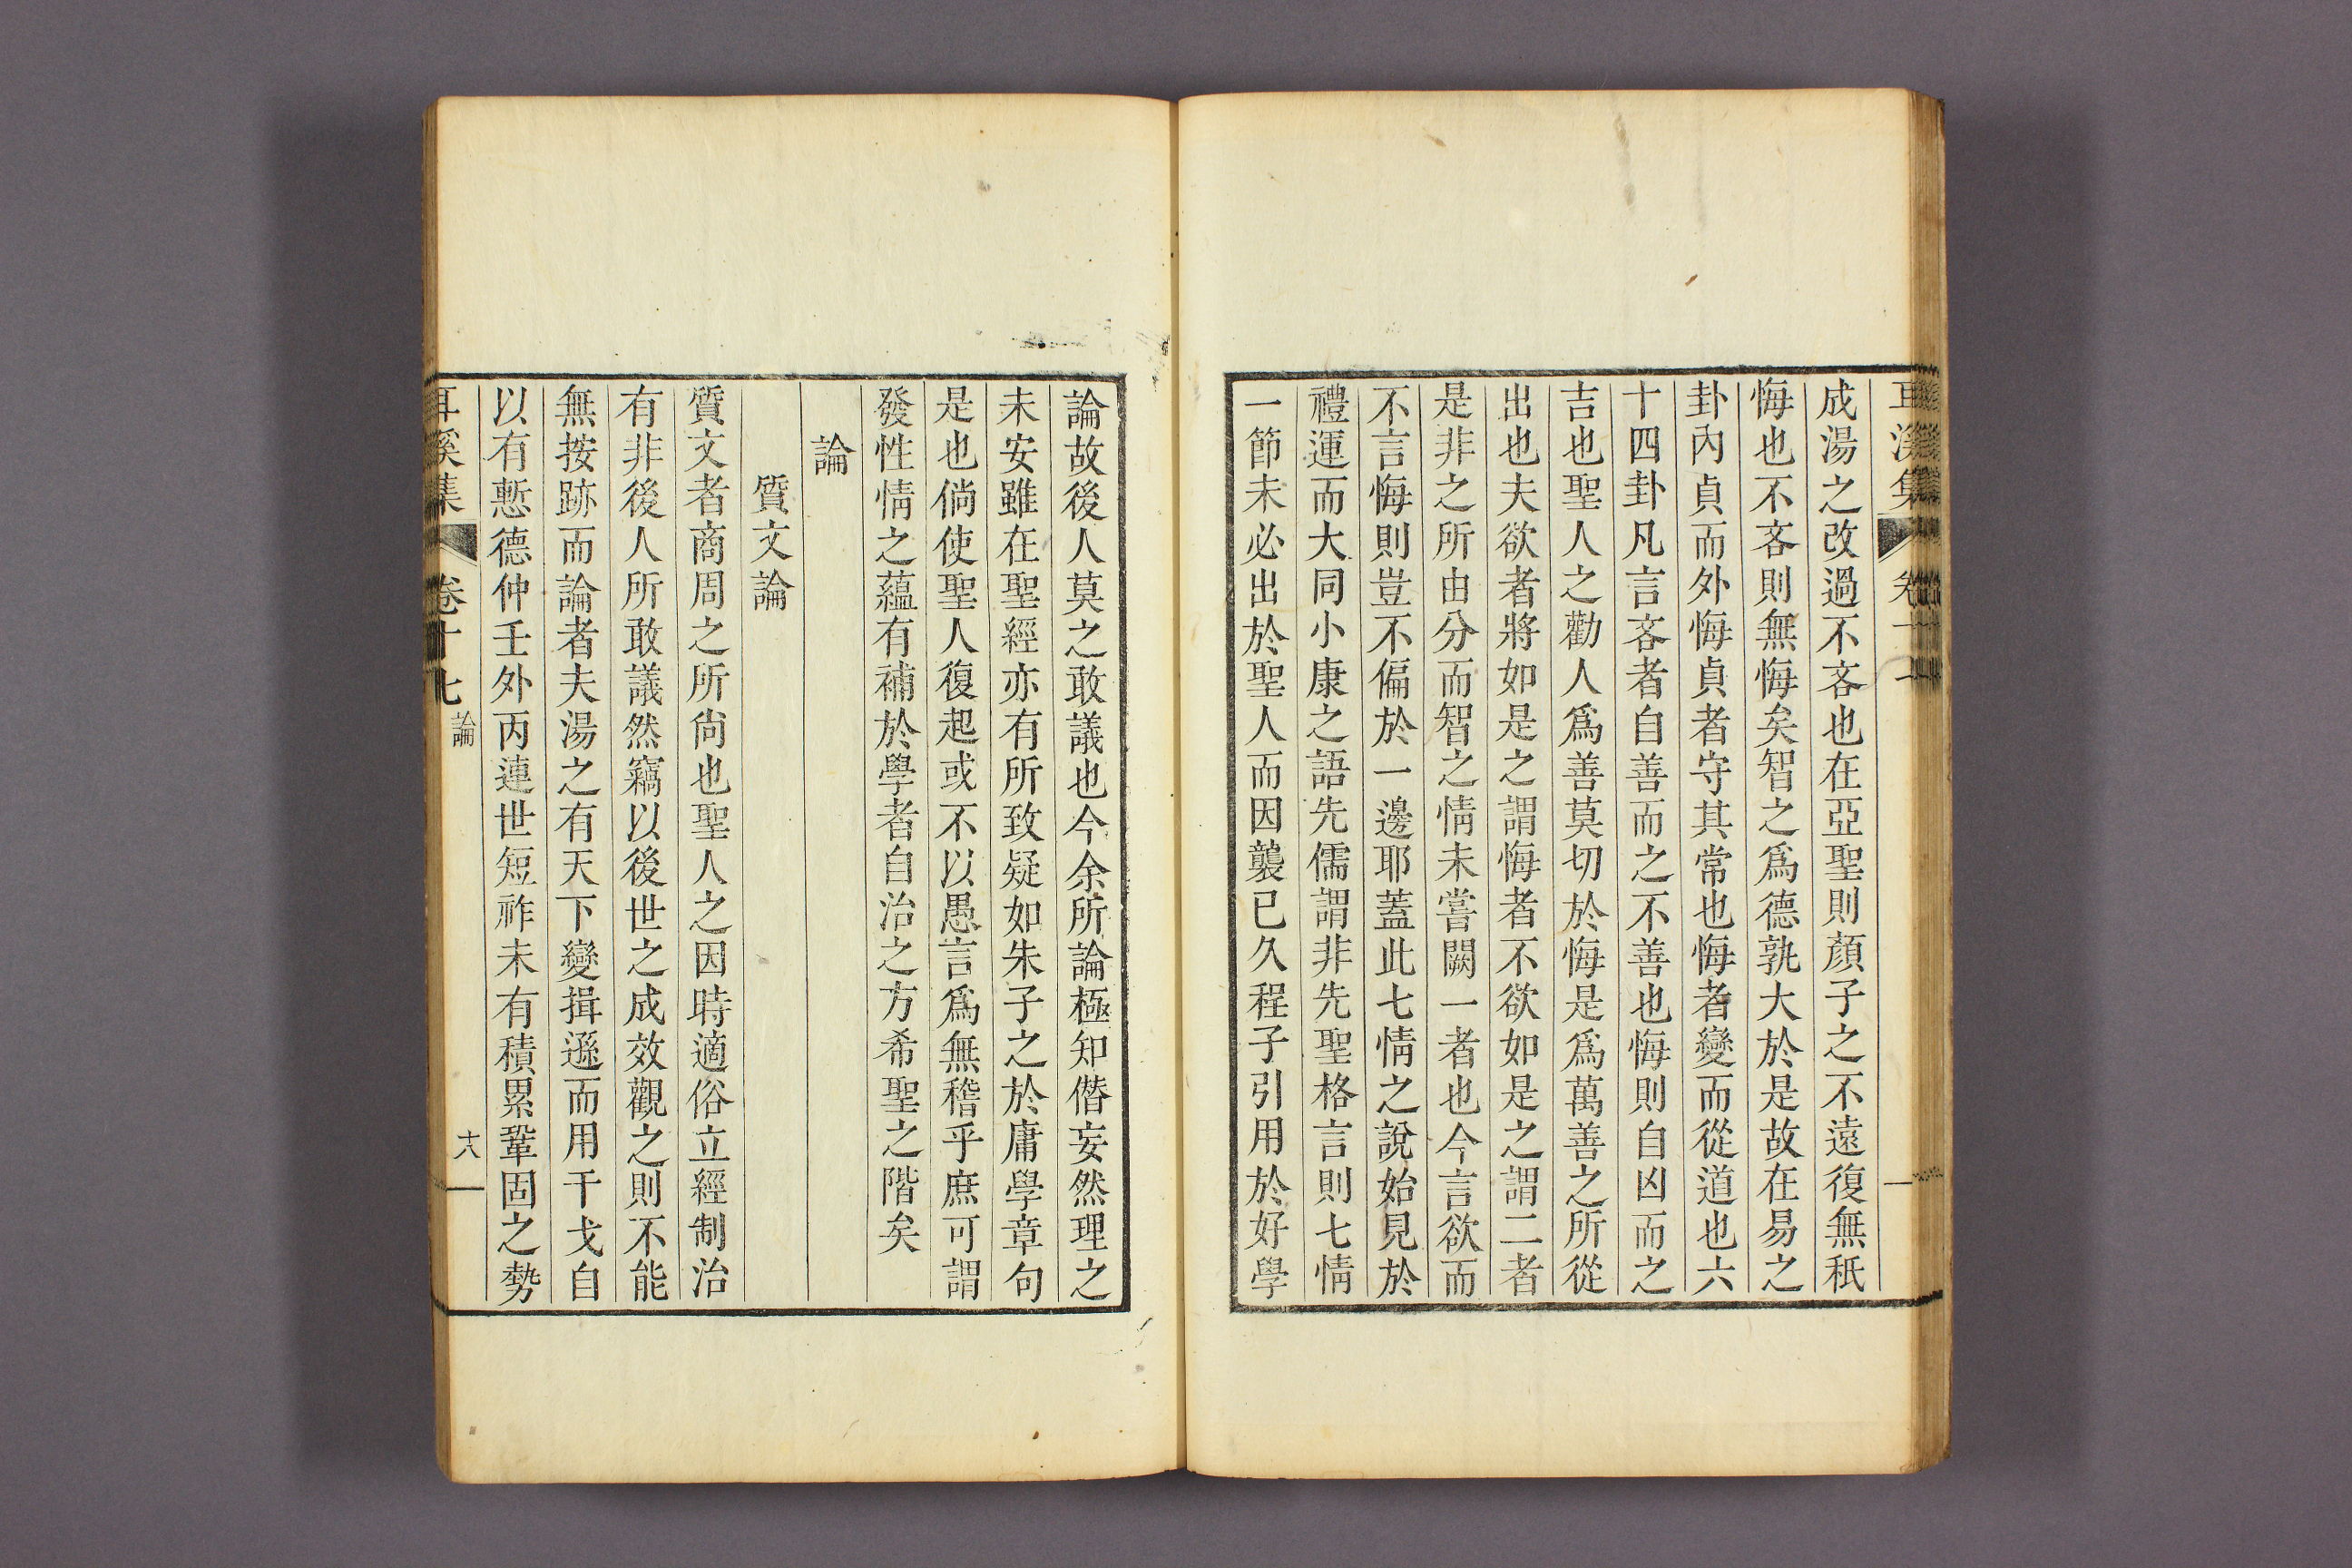 成湯之改過不吝也在亞聖則顏子之不遠復無秖
悔也不吝則無悔矣智之爲德孰大於是故在易之
卦內貞而外悔貞者守其常也悔者變而從道也六
十四卦凡言吝者自善而之不善也悔則自凶而之
吉也聖人之勸人爲善莫切於悔是爲萬善之所從
出也夫欲者將如是之謂悔者不欲如是之謂二者
是非之所由分而智之情未嘗闕一者也今言欲而
不言悔則豈不偏於一邊耶蓋此七情之說始見於
禮運而大同小康之語先儒謂非先聖格言則七情
一節未必出於聖人而因襲已久程子引用於好學
論故後人莫之敢議也今余所論極知僭妄然理之
未安雖在聖經亦有所致疑如朱子之於庸學章句
是也倘使聖人復起或不以愚言爲無稽乎庶可謂
發性情之蘊有補於學者自治之方希聖之階矣
論
質文論
質文者商周之所尙也聖人之因時適俗立經制治
有非後人所敢議然竊以後世之成效觀之則不能
無按跡而論者夫湯之有天下變揖遜而用干戈自
以有慙德仲壬外丙連世短祚未有積累鞏固之勢
耳溪集 卷十七 論 十八